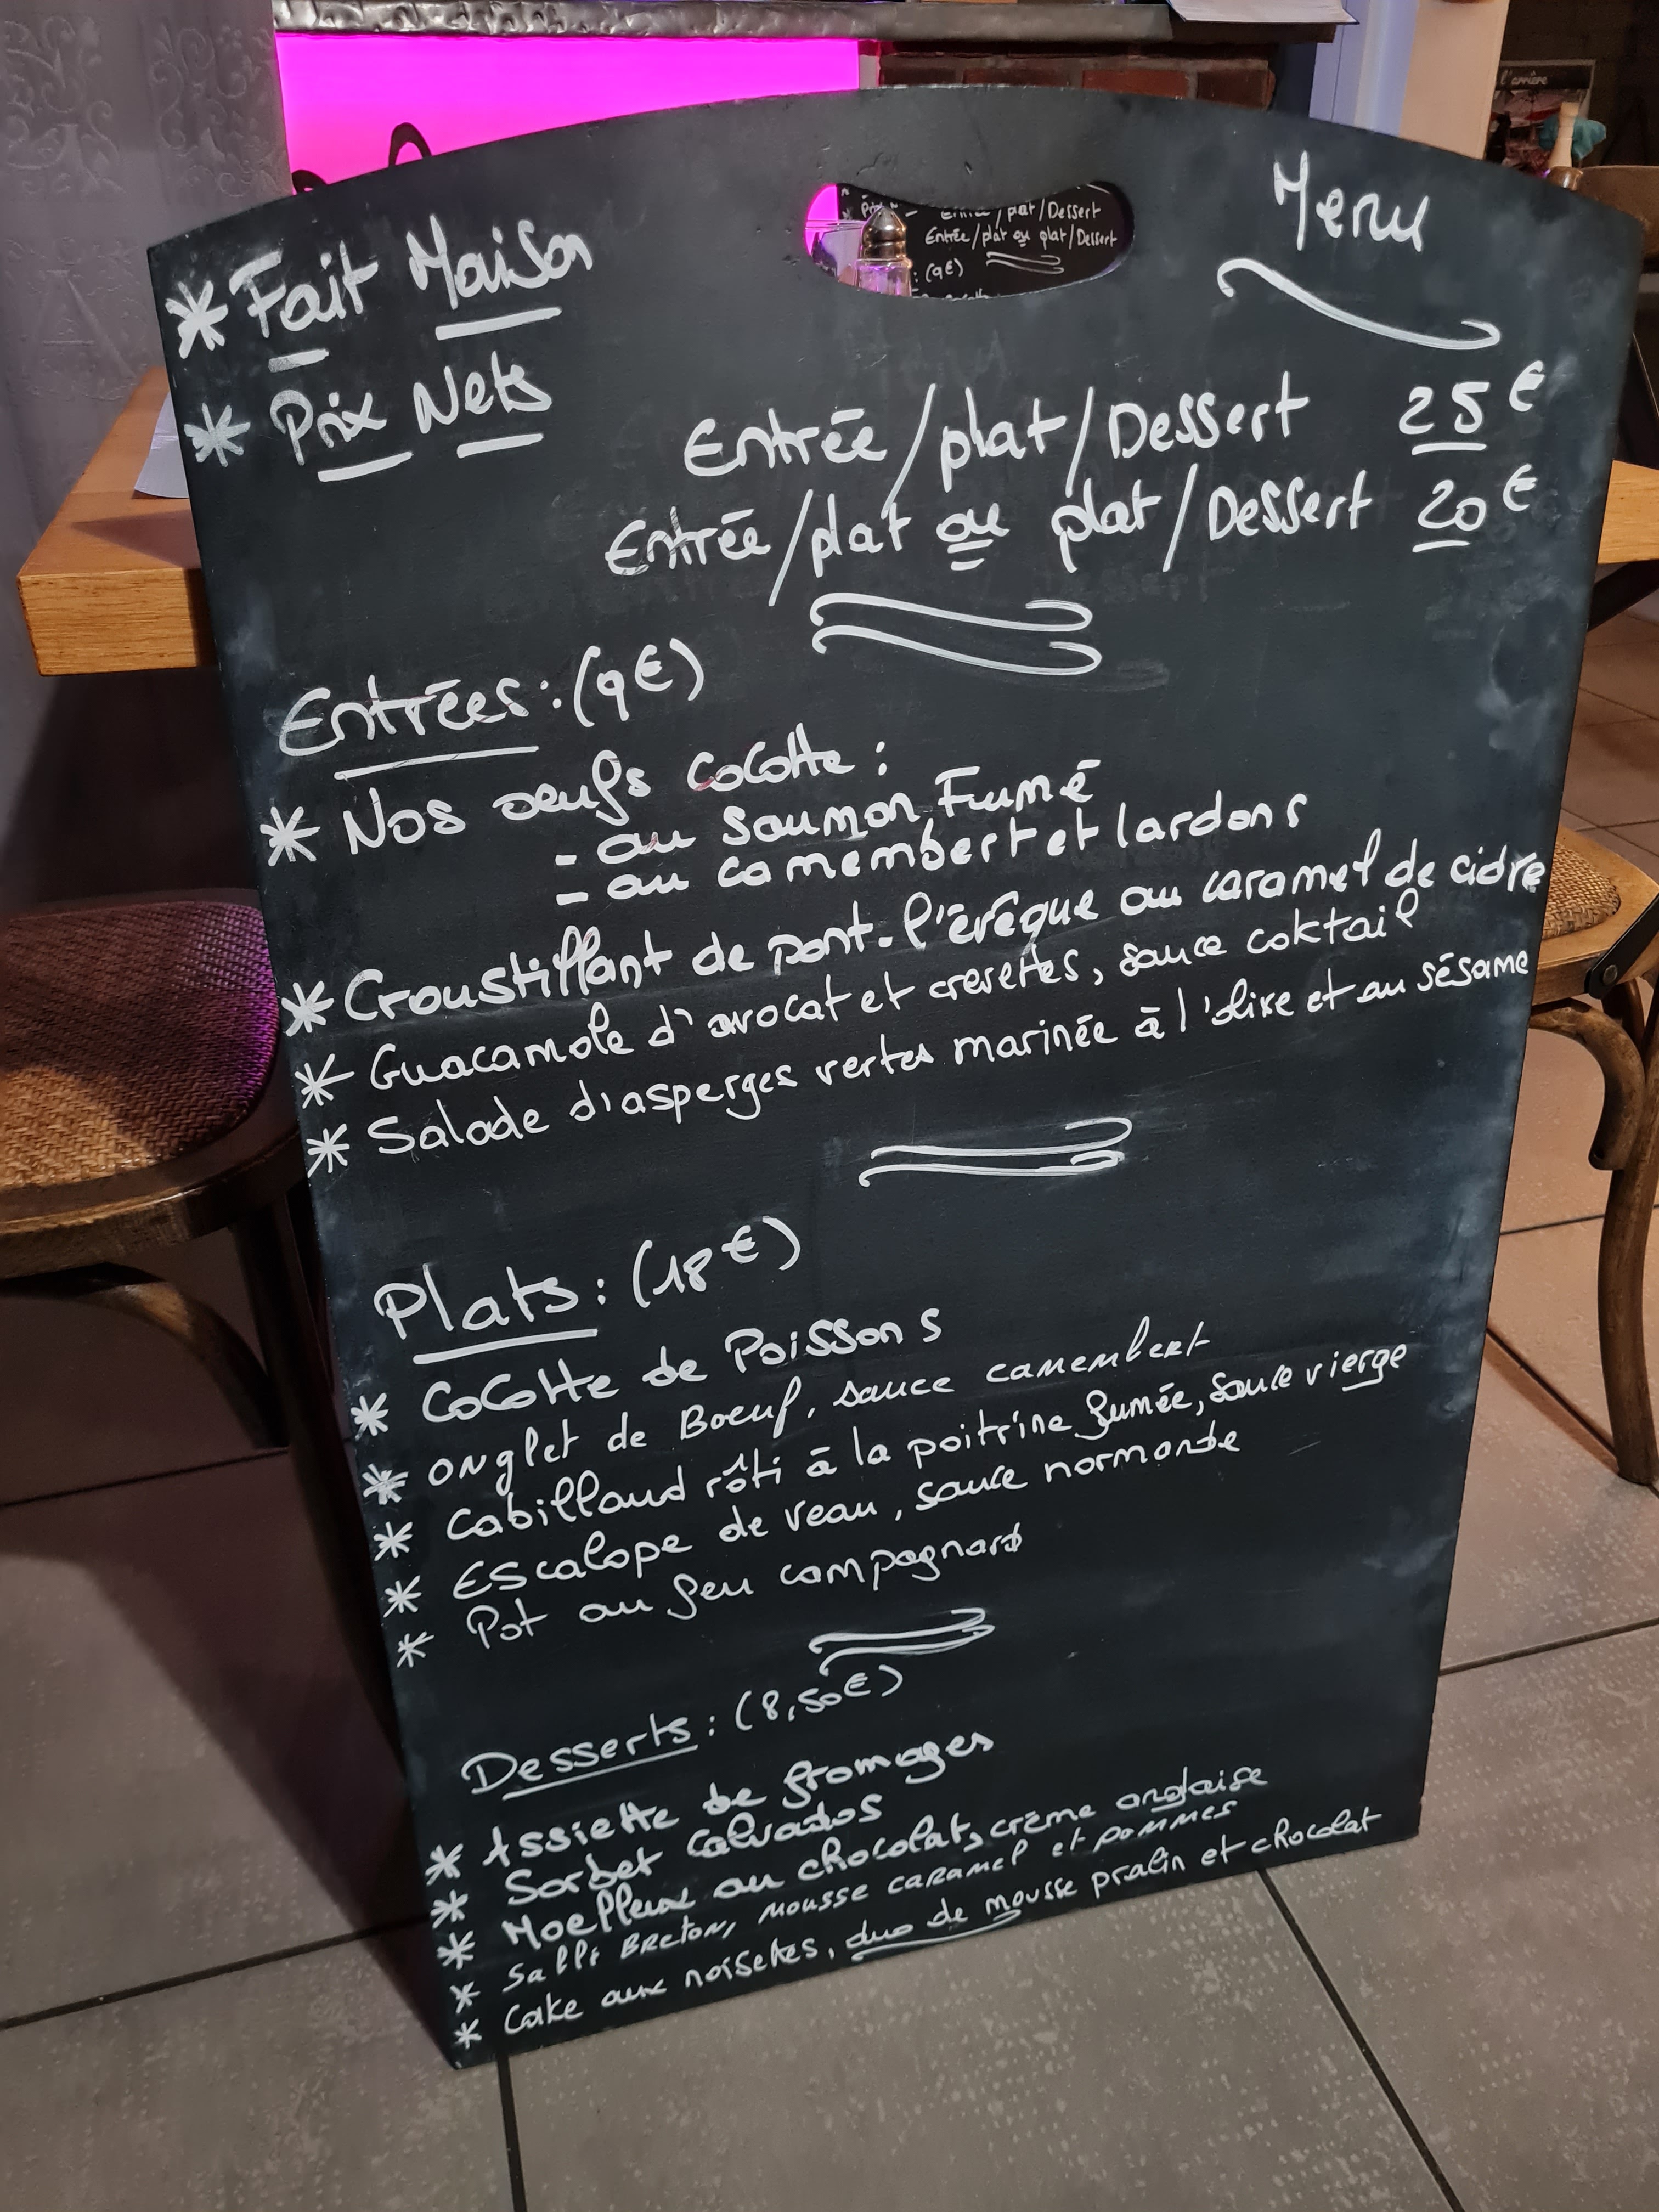 * Fait Maison
* Prix Nets
Menu
Entrée/plat/Dessert 25€
Entrée/plat ou plat/Dessert 20€
Entrées : (9€)
* Nos oeufs cocotte :
- au Saumon Fumé
- au camembert et lardons
* Croustillant de pont-l'évêque au caramel de cidre
* Guacamole d'avocat et crevettes, sauce coktail
* Salade d'asperges vertes marinée à l'olive et au sésame
Plats : (18€)
* Cocotte de Poissons
* Onglet de Boeuf, sauce camembert
* Cabillaud rôti à la poitrine fumée, sauce vierge
* Escalope de veau, sauce normande
* Pot au feu campagnard
Desserts : (8,50€)
* Assiette de fromages
* Sorbet Calvados
* Moelleux au chocolat, crème anglaise
* Sablé Breton, mousse caramel et pommes
* Cake aux noisettes, duo de mousse pralin et chocolat
Entrée/plat/Dessert
Entrée/plat ou plat/Dessert
: (9€)
l'arrière